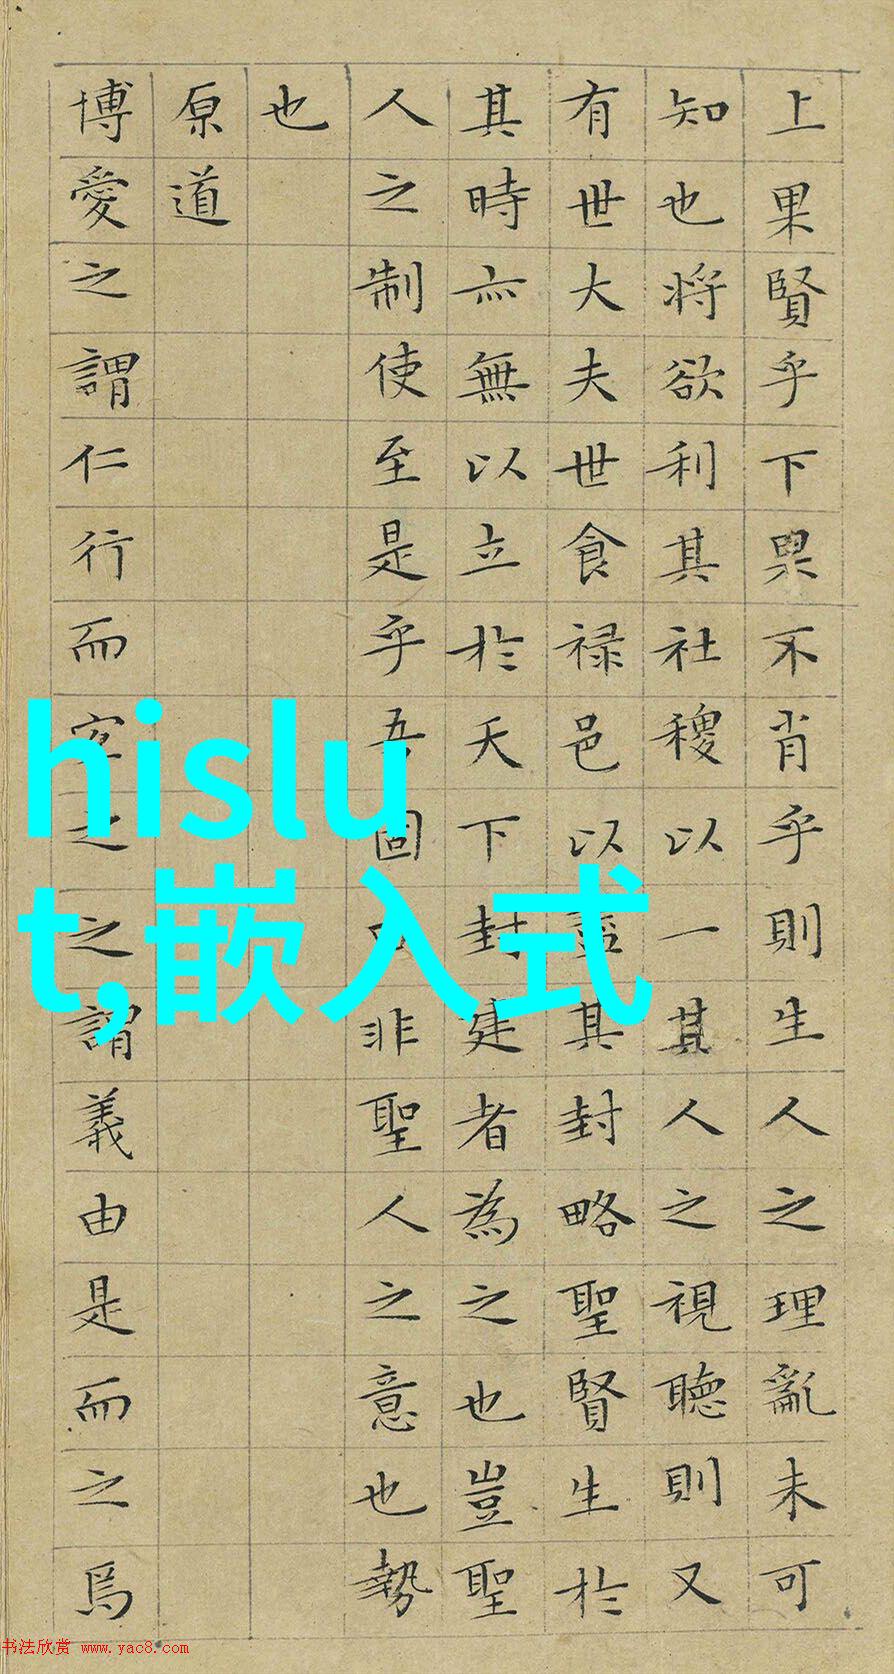 上果賢乎下果不肖乎則生人之理亂未可
知也将欲利其社稷以一其人之視聽則又
有世大夫世食禄邑以其封略聖賢生於
其時亦無以立於天下封建者為之也豈聖
人之制使至是乎吾固非聖人之意也勢
也
原道
博愛之謂仁行而之之謂義由是而之焉
hislu
t,嵌入式
书法欣赏 www.yac8.com